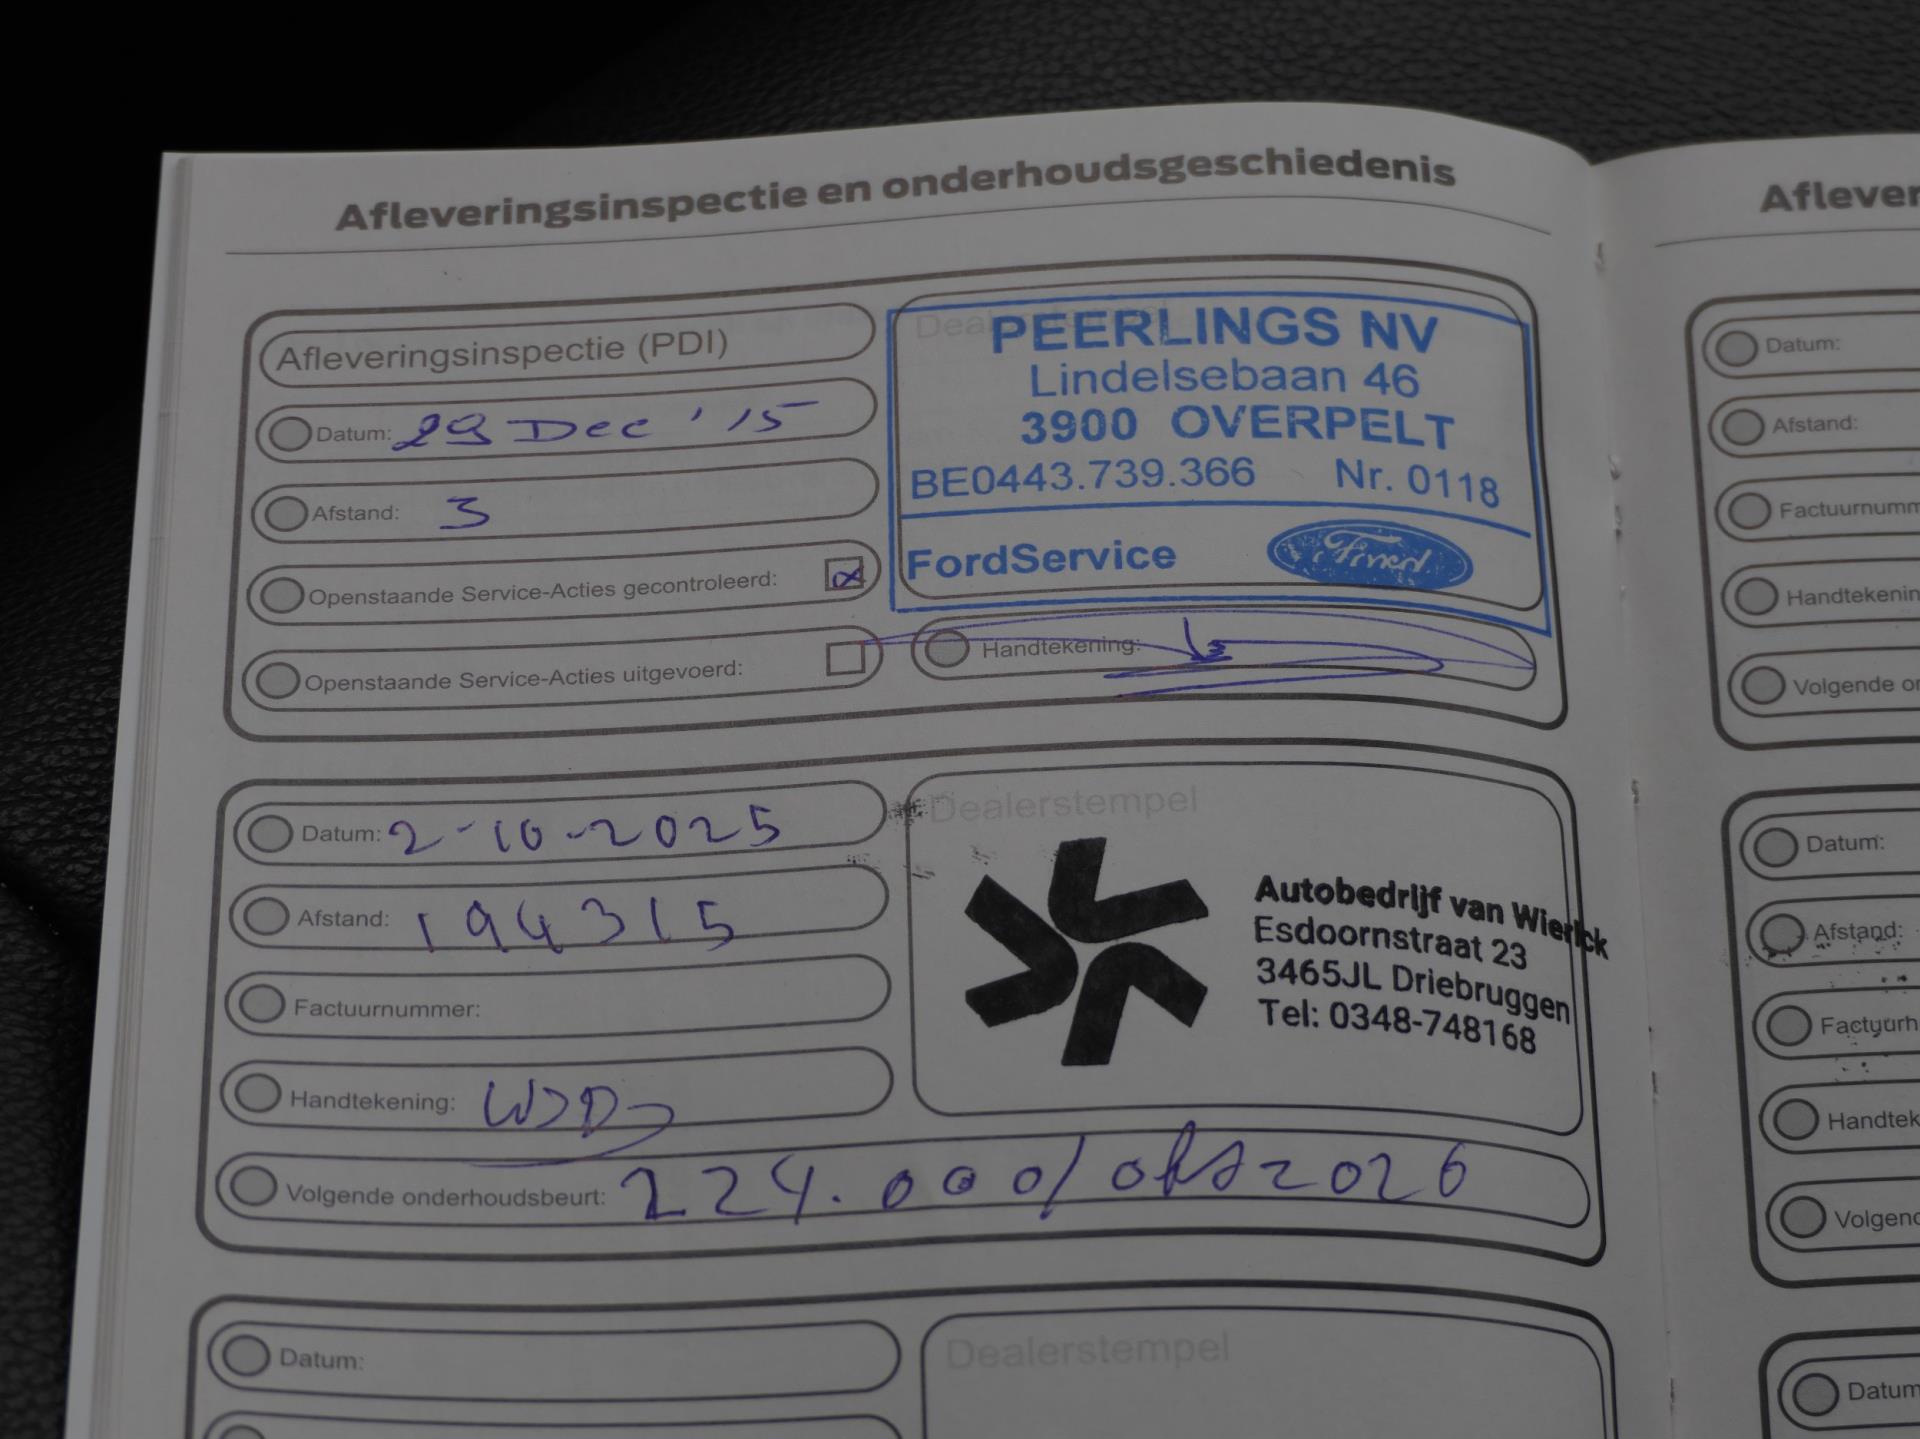 Afleveringsinspectie en onderhoudsgeschiedenis
Afleveringsinspectie (PDI)
Datum: 29 Dec '15
Afstand: 3
Openstaande Service-Acties gecontroleerd:
Openstaande Service-Acties uitgevoerd:
Dealerstempel
PEERLINGS NV
Lindelsebaan 46
3900 OVERPELT
BE0443.739.366 Nr. 0118
FordService Ford
Handtekening:
Datum: 2-10-2025
Afstand: 194315
Factuurnummer:
Handtekening:
Volgende onderhoudsbeurt: 224.000/ okt 2026
Dealerstempel
Autobedrijf van Wierick
Esdoornstraat 23
3465JL Driebruggen
Tel: 0348-748168
Datum:
Dealerstempel
Aflever
Datum:
Afstand:
Factuurnumm
Handtekenin
Volgende on
Datum:
Afstand:
Factuurn
Handtek
Volgend
Datum